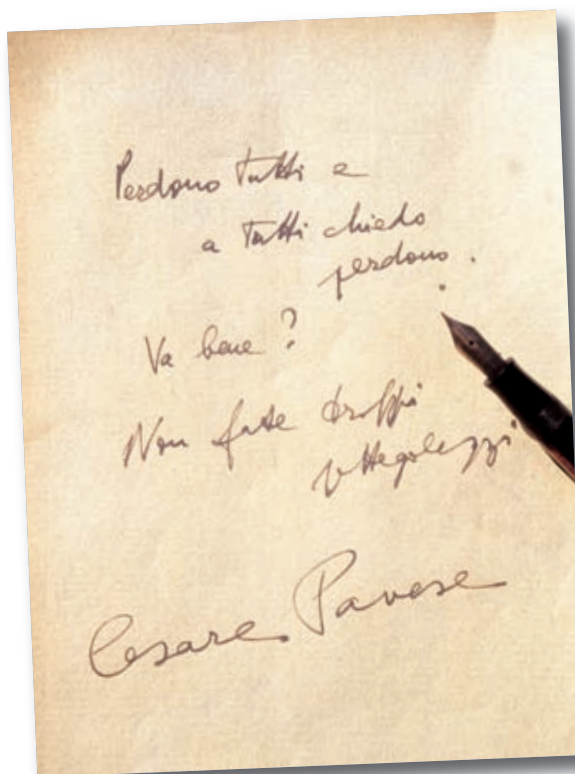 Perdono tutti e
a tutti chiedo
perdono.
Va bene?
Non fate troppi
pettegolezzi
Cesare Pavese